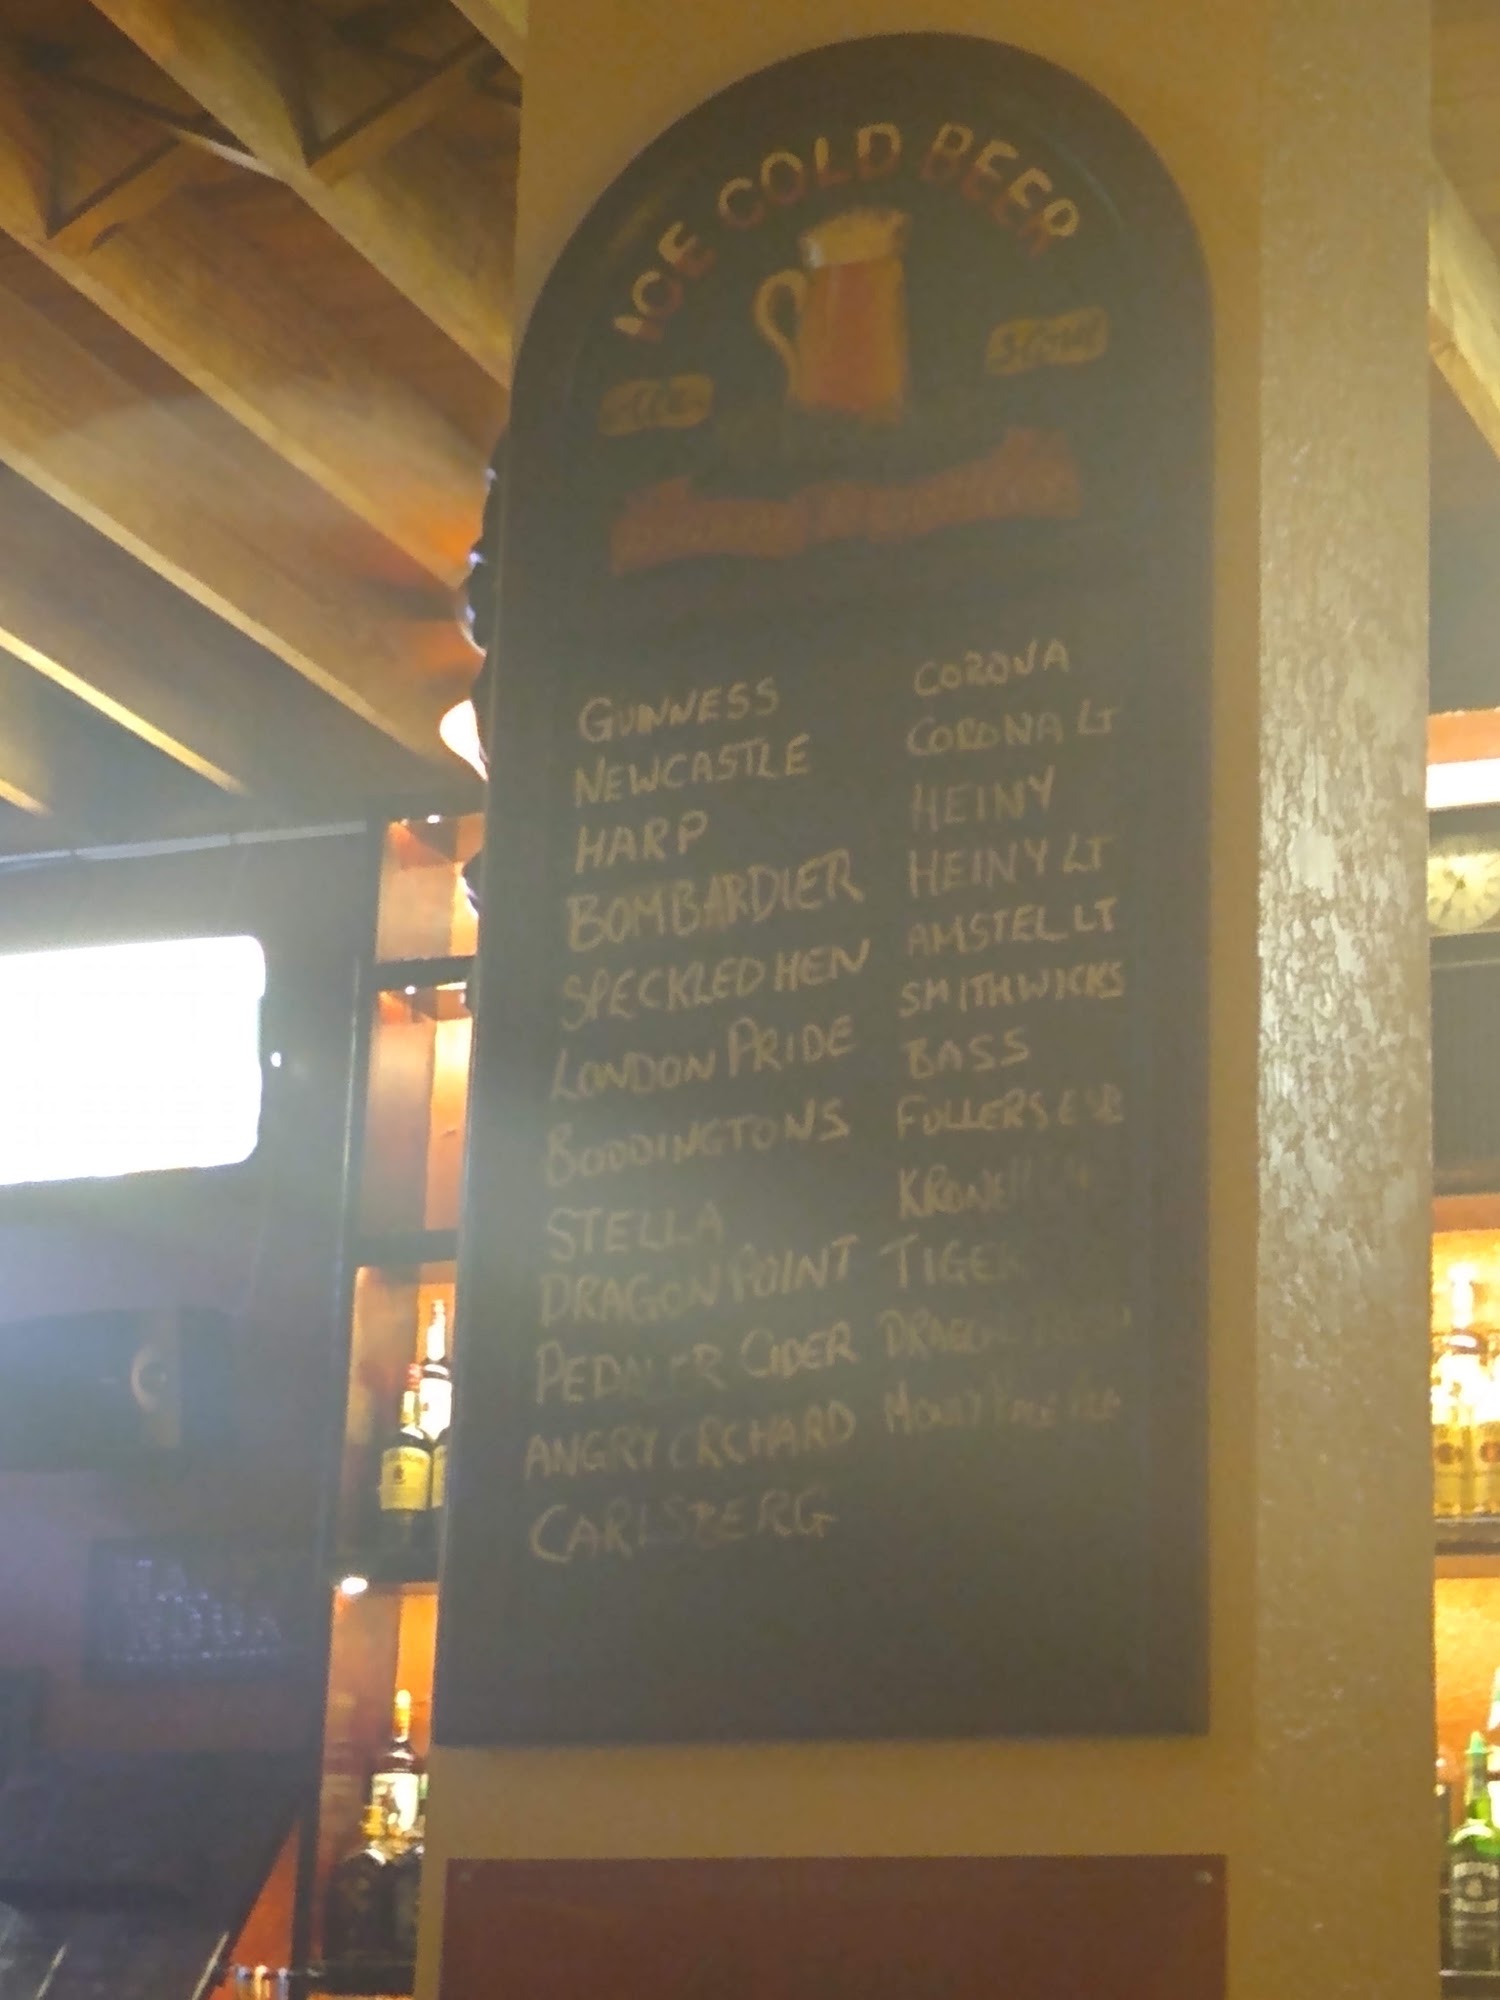 ICE COLD BEER
STOUT
GUINNESS
NEWCASTLE
HARP
BOMBARDIER
SPECKLED HEN
LONDON PRIDE
BODDINGTONS
STELLA
DRAGON POINT
CIDER
ANGRY ORCHARD
CARLSBERG
CORONA
CORONA LT
HEINY
HEINY LT
AMSTEL LT
SMITHWICKS
BASS
FULLERS ESB
TIGER